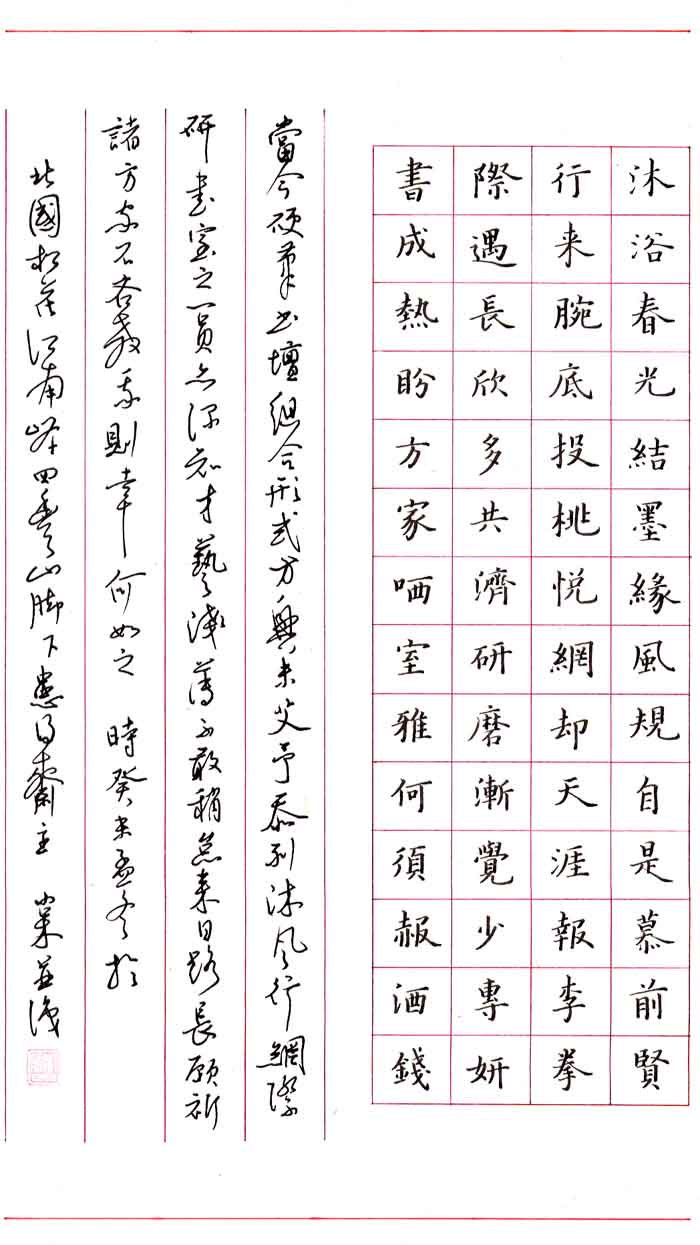 沐浴春光結墨緣風規自是慕前賢
行来腕底投桃悦網却天涯報李拳
際遇長欣多共濟研磨漸覺少專妍
書成熱盼方家哂室雅何須赧酒錢
當今硬筆书壇組合形式方興未艾予忝列沐風行網際
研書室之一員亦深知才藝淺薄不敢稍怠来日路長願祈
諸方家不吝教我則幸何如之 時癸未孟冬於
北國松花江南岸四季山脚下齋主